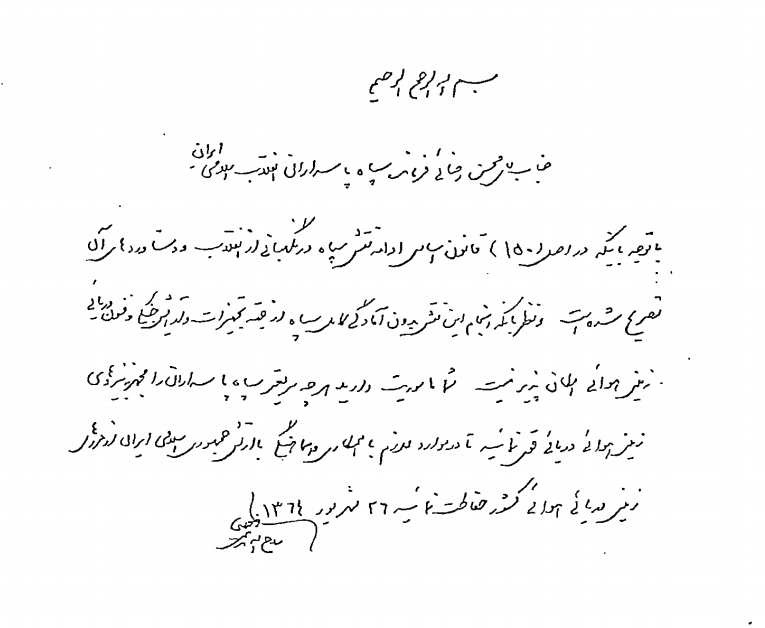 بسم الله الرحمن الرحیم
جناب آقای محسن رضائی فرمانده سپاه پاسداران انقلاب اسلامی ایران
با توجه باینکه در اصل (۱۵۰) قانون اساسی ادامه نقش سپاه در نگهبانی از انقلاب و دستاوردهای آن
تصریح شده است و نظر باینکه انجام این نقش بدون آمادگی کامل سپاه از جهت تجهیزات و فنون دریائی
زمینی هوائی امکان پذیر نیست شما ماموریت دارید هرچه سریعتر سپاه پاسداران را مجهز به نیروی
زمینی هوائی دریائی قوی نمائید تا در موارد لازم با همکاری و هماهنگی با ارتش جمهوری اسلامی ایران از مرزهای
زمینی دریائی هوائی کشور حفاظت نمائید ۲۶ شهریور ۱۳۶۴
روح الله الموسوی الخمینی